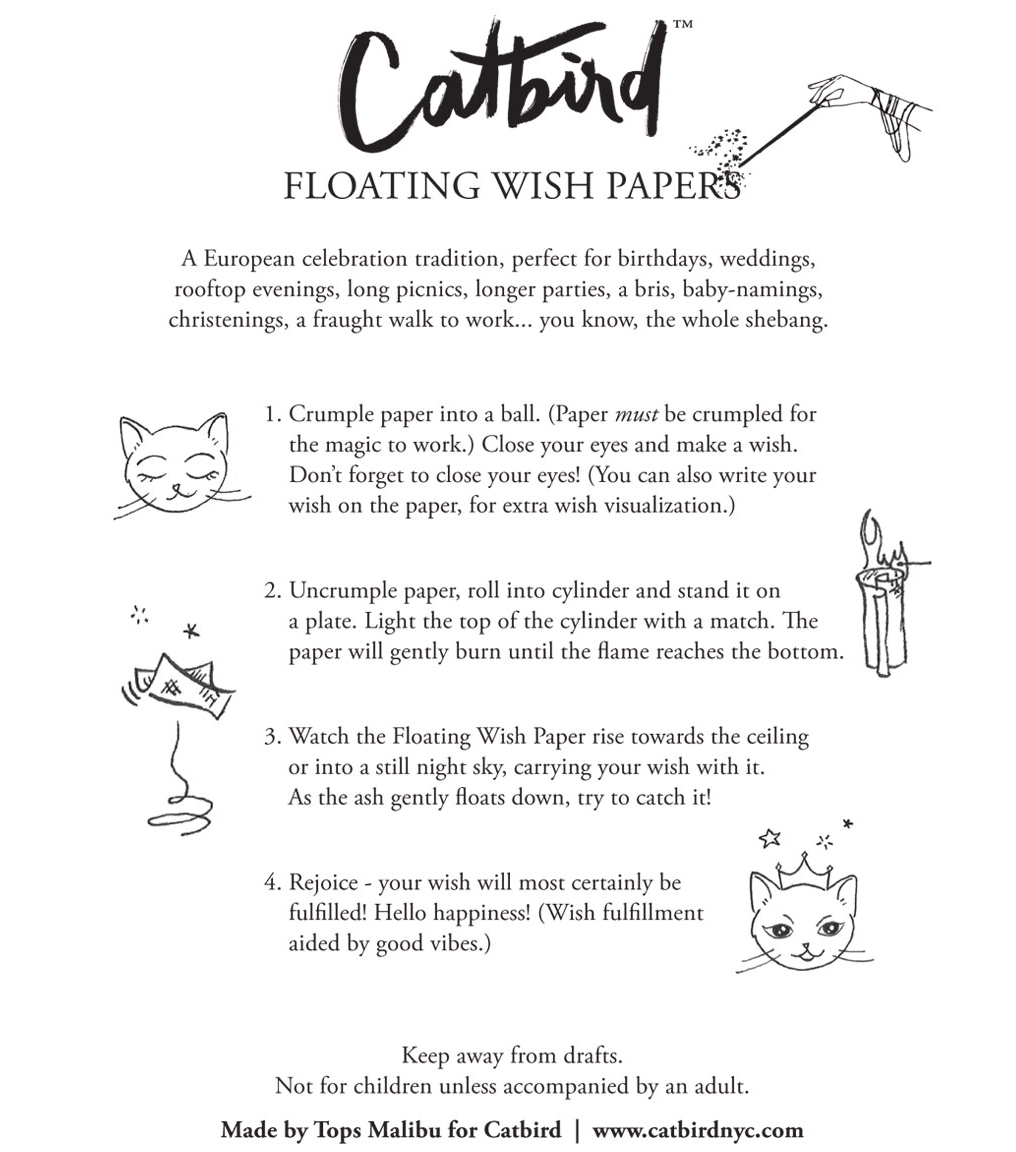 Catbird™
FLOATING WISH PAPERS
A European celebration tradition, perfect for birthdays, weddings,
rooftop evenings, long picnics, longer parties, a bris, baby-namings,
christenings, a fraught walk to work... you know, the whole shebang.
1. Crumple paper into a ball. (Paper must be crumpled for
the magic to work.) Close your eyes and make a wish.
Don’t forget to close your eyes! (You can also write your
wish on the paper, for extra wish visualization.)
2. Uncrumple paper, roll into cylinder and stand it on
a plate. Light the top of the cylinder with a match. The
paper will gently burn until the flame reaches the bottom.
3. Watch the Floating Wish Paper rise towards the ceiling
or into a still night sky, carrying your wish with it.
As the ash gently floats down, try to catch it!
4. Rejoice - your wish will most certainly be
fulfilled! Hello happiness! (Wish fulfillment
aided by good vibes.)
Keep away from drafts.
Not for children unless accompanied by an adult.
Made by Tops Malibu for Catbird | www.catbirdnyc.com